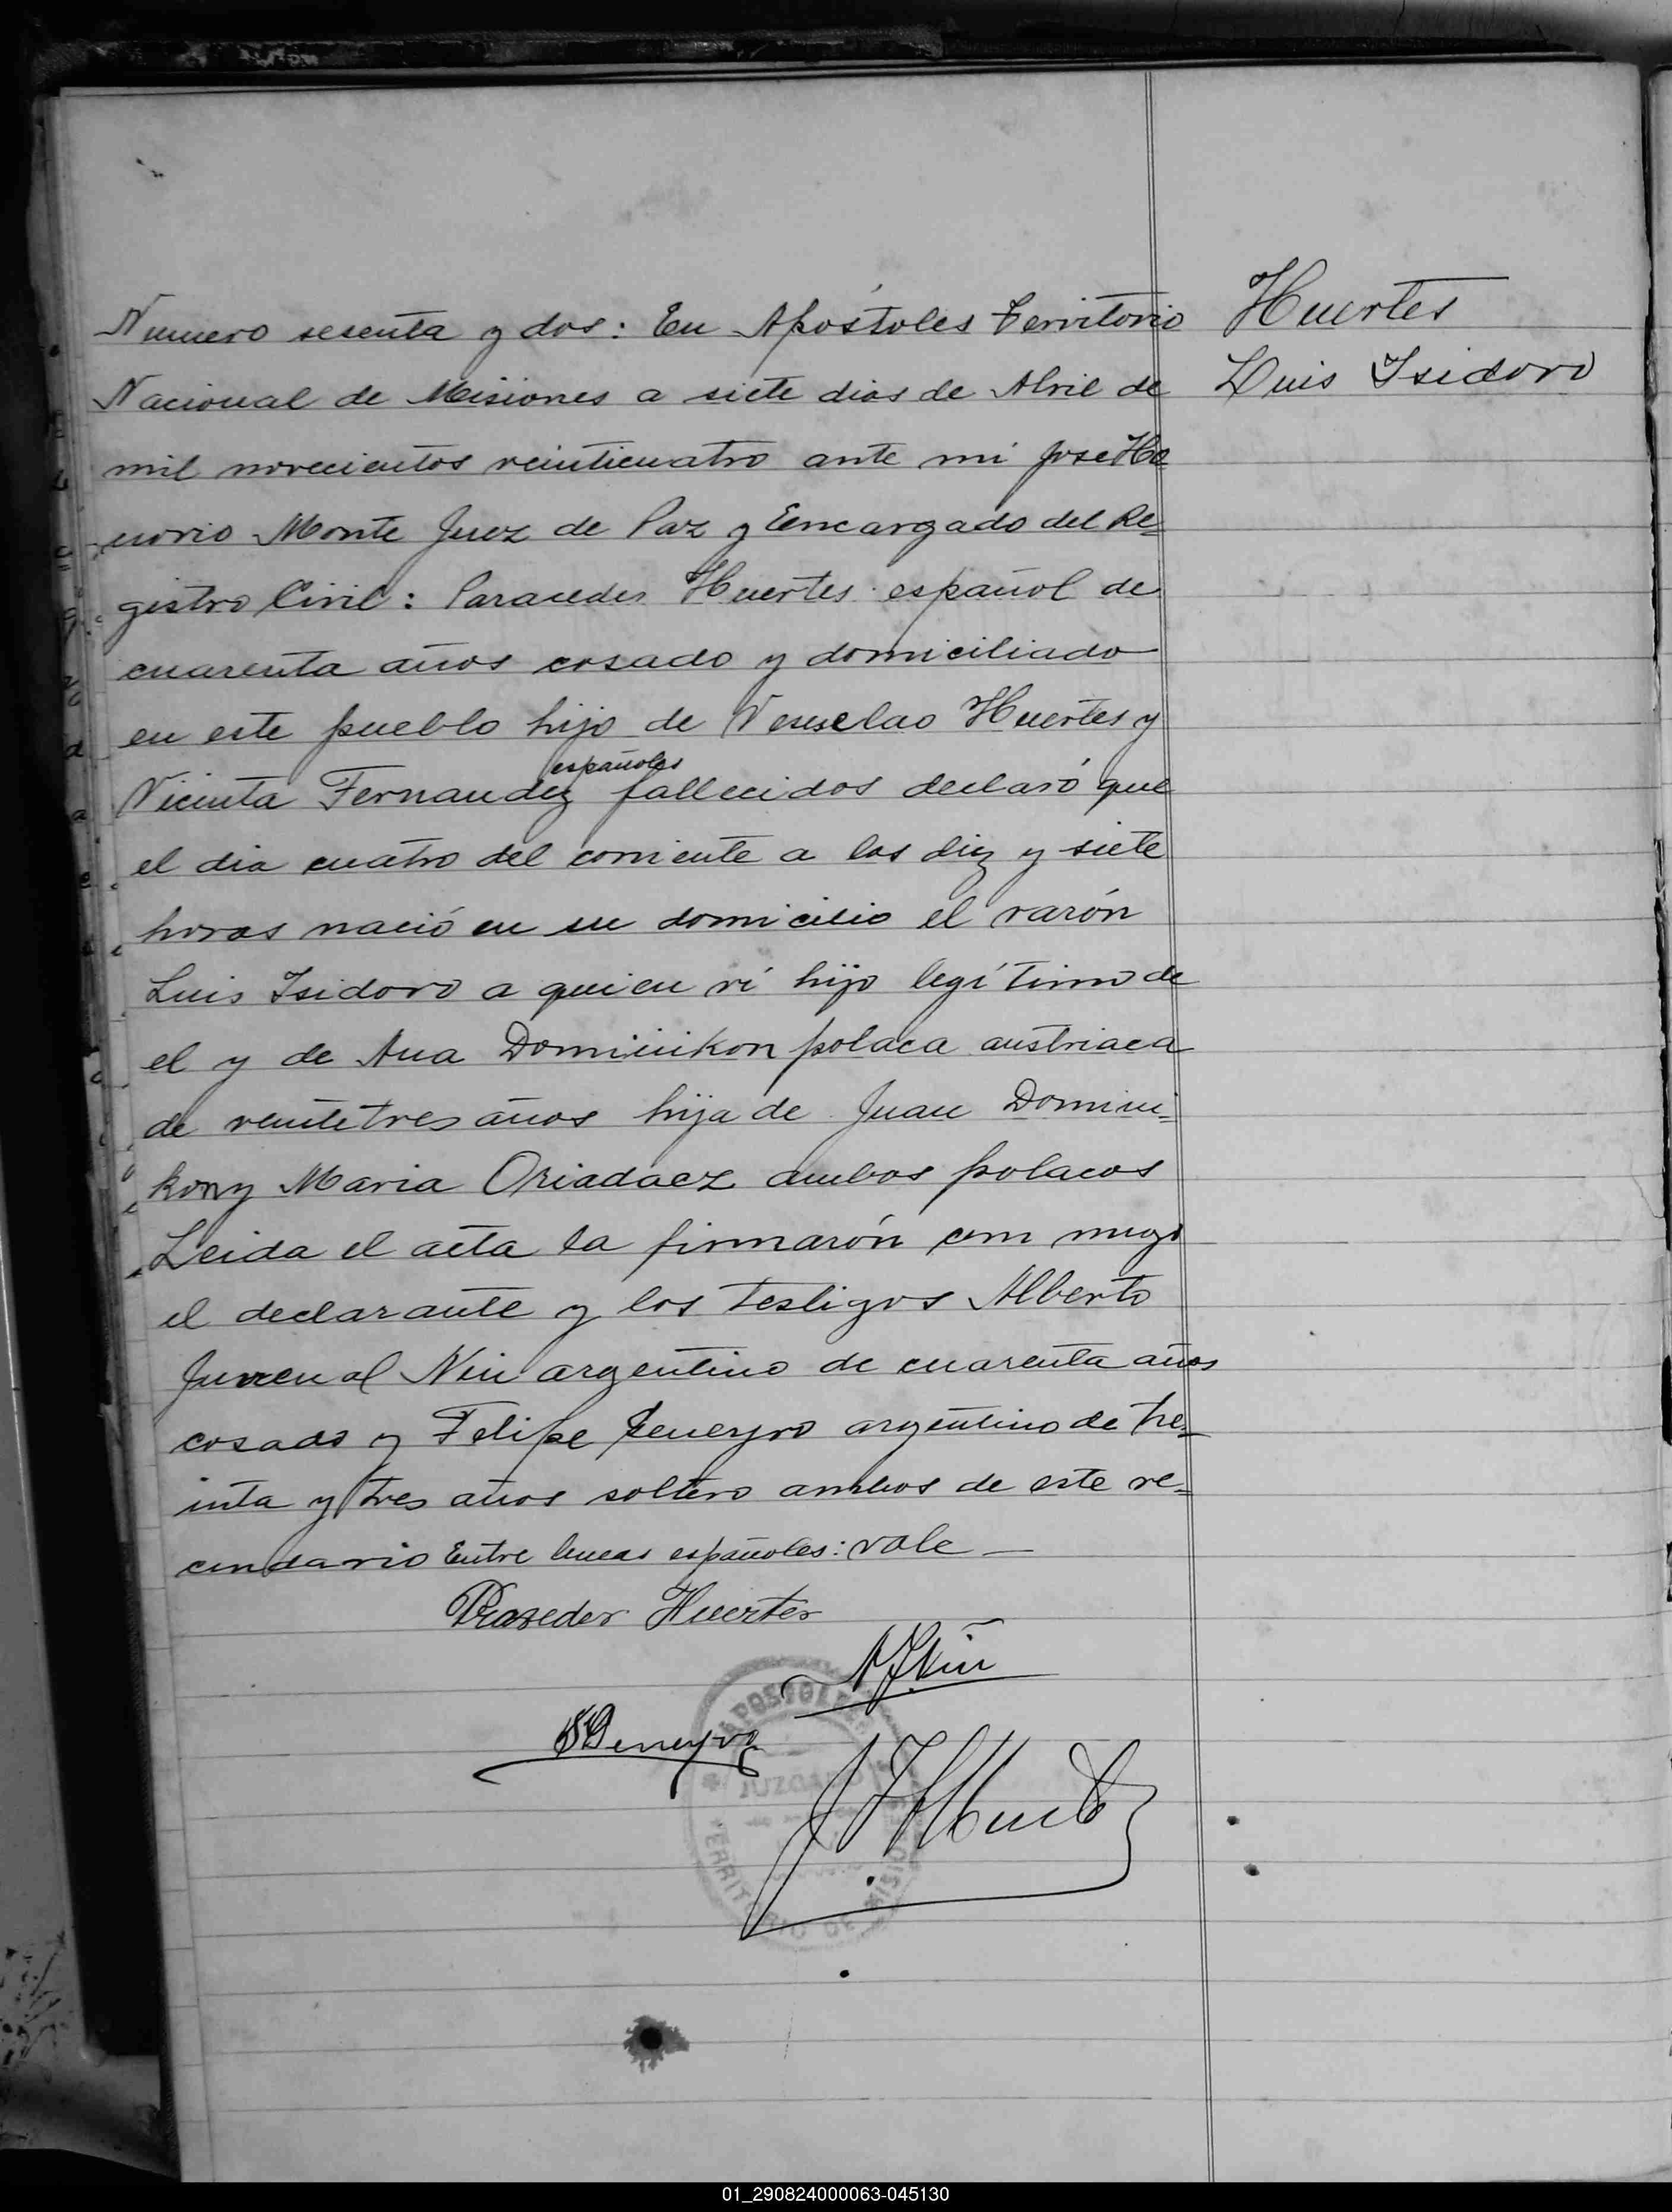 Numero sesenta y dos: En Apóstoles Territorio
Nacional de Misiones a siete dias de Abril de
mil novecientos veinticuatro ante mi José Ho
norio Monte Juez de Paz y Eencargado del Re=
gistro Civil: Paracedes Huertes español de
cuarenta años casado y domiciliado
en este pueblo hijo de Venseslao Huertes y
españoles
Vicenta Fernandez fallecidos declaró que
el dia cuatro del corriente a las diez y siete
horas nació en su domicilio el varón
Luis Isidoro a quien vi hijo legítimo de
el y de Ana Dominikon polaca austriaca
de veintetres años hija de Juan Domini=
kon y Maria Oriadacz ambos polacos
Leida el acta la firmarón con migo
el declarante y los testigos Alberto
Juvenal Nin argentino de cuarenta años
casado y Felipe Seneyro argentino de tre=
inta y tres años soltero ambos de este ve=
cindario Entre lineas españoles: vale
Praseder Huertes
A J Nin
Seneyro
Huertes
Luis Isidoro
APOSTOLES
JUZGADO
TERRITORIO DE MISIONES
01_290824000063-045130